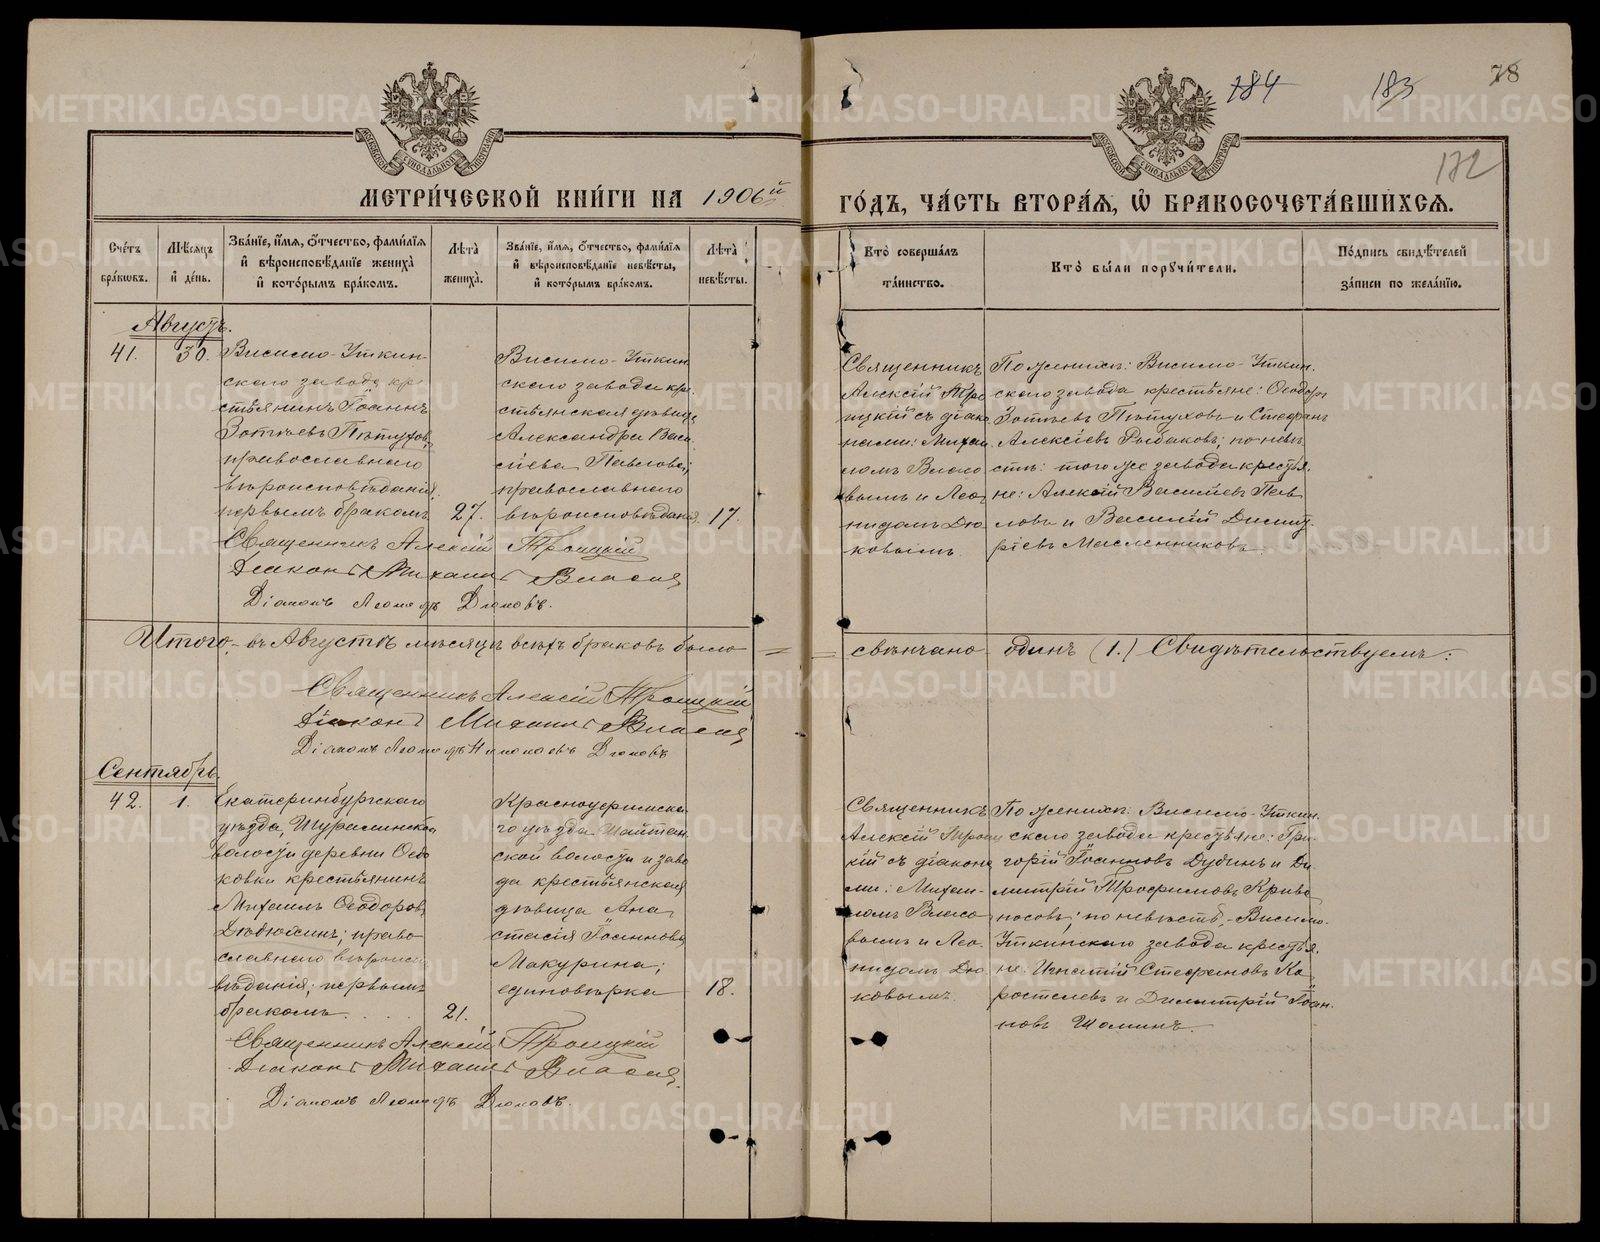 184 183 78
172
МОСКОВСКОЙ СѴНОДАЛЬНОЙ ТИПОГРАФІИ
МОСКОВСКОЙ СѴНОДАЛЬНОЙ ТИПОГРАФІИ
МЕТРИ́ЧЕСКОЙ КНИ́ГИ НА 1906й
ГО́ДЪ, ЧА́СТЬ ВТОРА́Ѧ, Ѡ҆ БРАКОСОЧЕТА́ВШИХСѦ.
Сче́тъ бра́кωвъ.
Мѣ́сѧцъ и҆ де́нь.
Зва́нїе, и҆́мѧ, ѻ҆́тчество, фами́лїѧ и҆ вѣроисповѣ́данїе жениха̀ и҆ кото́рымъ бра́комъ.
Лѣта̀ жениха̀.
Зва́нїе, и҆́мѧ, ѻ҆́тчество, фами́лїѧ и҆ вѣроисповѣ́данїе невѣ́сты, и҆ кото́рымъ бра́комъ.
Лѣта̀ невѣ́сты.
Кто̀ соверша́лъ та́инство.
Кто̀ бы́ли порꙋчи́тели.
По́дпись свидѣ́телей за́писи по жела́нїю.
Августъ.
41. 30.
Висимо-Уткин-
скаго завода кре
стьянинъ Іоаннъ
Зотѣевъ Пѣтухов,
православнаго
вѣроисповѣданія,
первымъ бракомъ
27.
Висимо-Уткин
скаго завода кре
стьянская дѣвица
Александра Васи
лiева Павлова;
православнаго
вѣроисповѣданія.
17.
Священникъ
Алексій Тро
ицкій съ діако
нами: Михаи
ломъ Власо
вымъ и Лео
нидомъ Дю
ковымъ.
По женихѣ: Висимо-Уткин.
скаго завода крестьяне: Ѳеодоръ
Зотѣевъ Пѣтуховъ и Стефанъ
Алексіевъ Рыбаковъ; по невѣ
стѣ: того же завода крестья
не: Алексій Василіевъ Пав
ловъ и Василій Димит
ріевъ Масленниковъ.
Священникъ Алексій Троицкій
Діаконъ Михаилъ Власовъ
Діаконъ Леонидъ Дюковъ.
Итого-въ Августѣ мѣсяцѣ всѣхъ браковъ было
== свѣнчано одинъ (1.) Свидѣтельствуемъ:
Священникъ Алексій Троицкій
Діаконъ Михаилъ Власовъ
Діаконъ Леонидъ Дюковъ
Сентябрь.
42. 1.
Екатеринбургскаго
уѣзда, Шуралинской
волости деревни Осб
ковки крестьянинъ
Михаилъ Ѳеодоров,
Дѣдюхинъ; право
славнаго вѣроиспо
вѣданія; первымъ
бракомъ . . . .
21.
Красноуфимска
го уѣзда Шайтан
ской волости и заво
да крестьянская
дѣвица Ана
стасія Іоаннова
Макурина;
единовѣрка
18.
Священникъ
Алексій Троиц
кій съ діакона
ми: Михаи-
ломъ Власо
вымъ и Лео.
нидомъ Дю
ковымъ.
По женихѣ: Висимо-Уткин.
скаго завода крестьяне: Гри.
горій Іоанновъ Дубинъ и Ди
митрій Трофимовъ Криво
носовъ; по невѣстѣ,-Висимо-
Уткинскаго завода крестья.
не: Игнатій Стефановъ Ко
ростелевъ и Димитрій Іоан.
новъ Шаминъ.
Священникъ Алексій Троицкій
Діаконъ Михаилъ Власовъ
Діаконъ Леонидъ Дюковъ.
METRIKI.GASO-URAL.RU